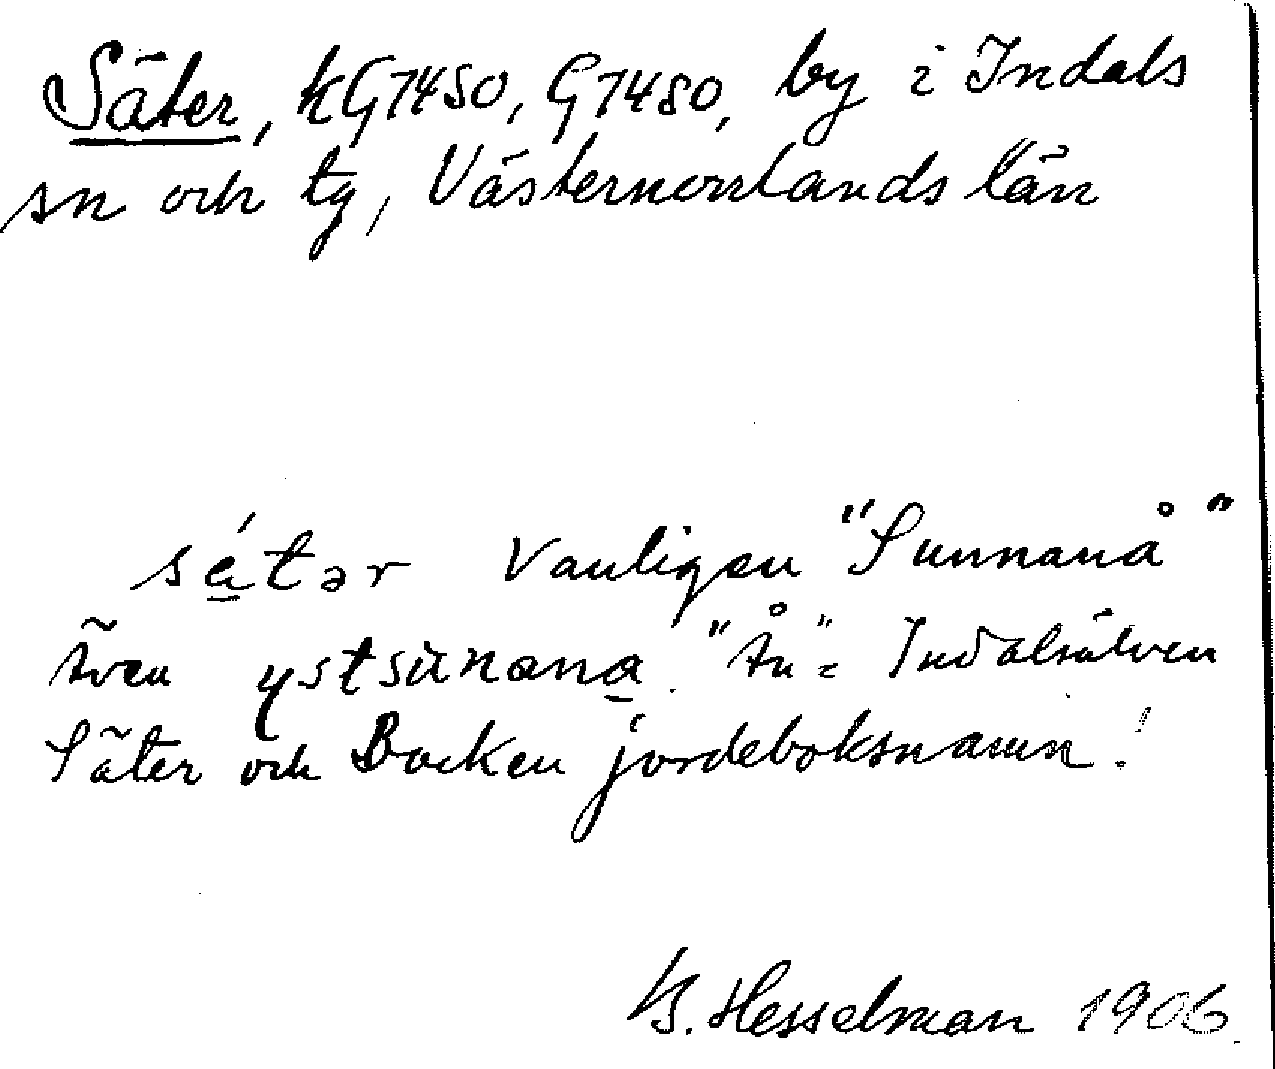 Säter, kG7450, G7480, by i Indals
sn och tg, Västernorrlands län
sátər Vanligen "Sunnanå"
även ystsùnana. "Ån" = Indalsälven
Säter och Backen jordeboksnamn!
B. Hesselman 1906.